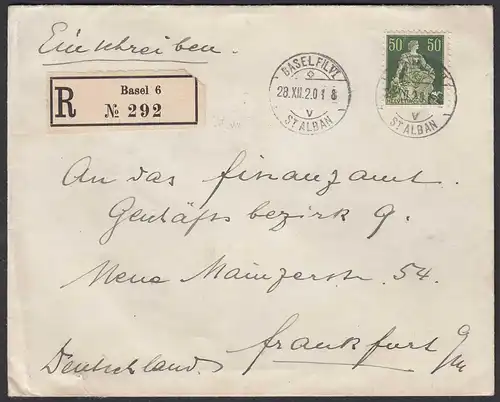 Einschreiben.
R Basel 6
№ 292
BASEL FIL. VI
28.XII.20.18
V
ST. ALBAN
50 50
HELVETIA
V
ST. ALBAN
An das Finanzamt.
Geschäfts bezirk 9.
Neue Mainzerstr. 54.
Frankfurt a/m
Deutschland.